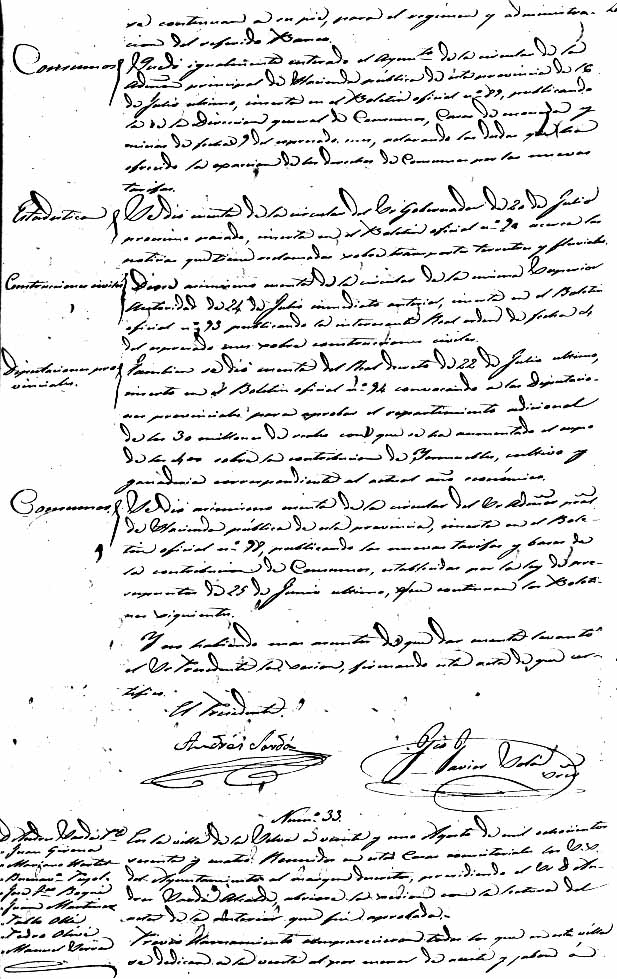 se continuan a su pié, para el regimen y administra-
cion del referido Banco.
Consumos
Quedó igualmente enterado el Ayuntº de la circular de la
Admon principal de Hacienda pública de esta provincia de 16
de Julio ultimo, inserta en el Boletin oficial nº 89, publicando
la de la Direccion general de Consumos, Casas de moneda y
minas de fecha 9 del espresado mes, aclarando las dudas que
ofrecido la esaccion de los derechos de Consumos por las nuevas
tarifas.
Estadistica
Se dió cuenta de la circular del Sr Gobernador de 20 de Julio
procsimo pasado, inserta en el Boletin oficial nº 92 acerca las
noticias que tiene reclamadas sobre transporte terrestre y fluvial.
Construcciones civiles
Diose asimismo cuenta de la circular de la misma Superior
Autoridad de 24 de Julio inmediato anterior, inserta en el Boletin
oficial nº 93 publicando la interesante Real orden de fecha 4
del espresado mes sobre construcciones civiles.
Diputaciones pro-
vinciales.
Tambien se dió cuenta del Real decreto de 22 de Julio ultimo,
inserto en el Boletin oficial nº 94 convocando a las Diputacio-
nes provinciales para aprobar el repartimiento adicional
de los 30 millones de reales con que se ha aumentado el cupo
de los 400 sobre la contribucion de Inmuebles, cultivo y
ganaderia correspondiente al actual año económico.
Consumos
Se dió asimismo cuenta de la circular del Sr Admor pral
de Hacienda pública de esta provincia, inserta en el Bole-
tin oficial nº 98, publicando las nuevas tarifas y bases de
la contribucion de Consumos, establecidas por la ley de pre-
supuestos de 25 de Junio ultimo, que continuan los Boleti-
nes siguientes.
Y no habiendo mas asuntos de que dar cuenta levantó
el Sr Presidente la sesion, firmando esta acta de que cer-
tifico.
El Presidente
Andrés Sardá
Javier
Num.º 33.
Juan Girona
Pablo Ollé
Pedro Olivé
Manuel
En la villa de la Selva a veinte y uno Agosto de mil ochocientos
sesenta y cuatro. Reunidos en estas Casas consistoriales los S.S.
del Ayuntamiento al margen descritos, presididos el Sr D. An-
drés Sardá Alcalde, abriose la sesion con la lectura del
acta de la anterior que fué aprobada.
Previo llamamiento comparecieron todos los que en esta villa
se dedican a la venta al por menor de aceite y jabon á